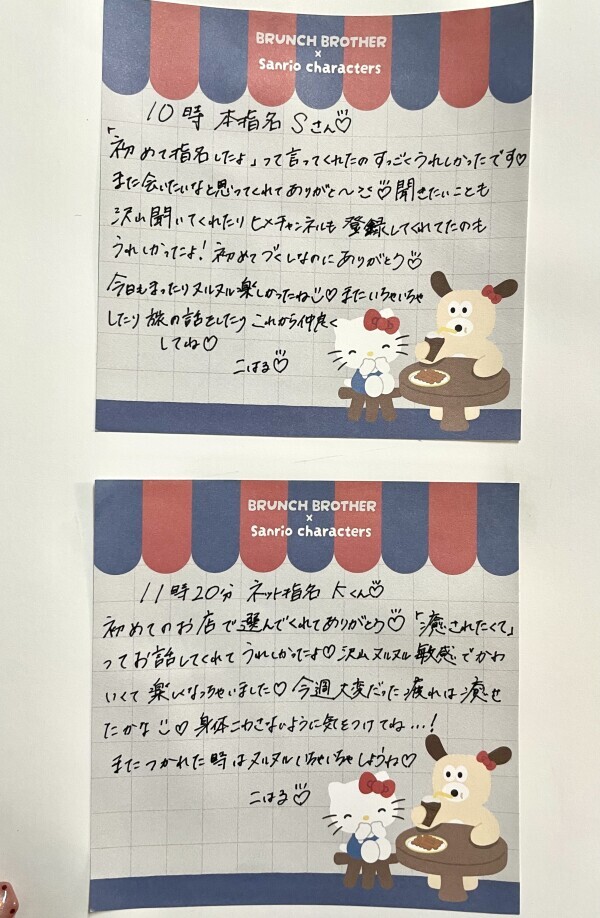 BRUNCH BROTHER
×
Sanrio characters
10時 本指名 Sさん♡
「初めて指名したよ」って言ってくれたの すっごくうれしかったです♡
また会いたいなと思ってくれてありがと〜♡聞きたいことも
沢山聞いてくれたり ヒメチャンネルも 登録してくれてたのも
うれしかったよ！初めてづくしなのに ありがとう♡
今日もまったりヌルヌル楽しかったね♡またいちゃいちゃ
したり 旅の話をしたり これから仲良く
してね♡
こはる♡
BRUNCH BROTHER
×
Sanrio characters
11時20分 ネット指名 Kくん♡
初めてのお店で選んでくれてありがとう♡「癒されたくて」
ってお話してくれて うれしかったよ♡沢山ヌルヌル敏感でかわ
いくて 楽しくなっちゃいました♡今週大変だった疲れは癒せ
たかな♡身体こわさないように気をつけてね…！
またつかれた時はヌルヌルいちゃいちゃしようね♡
こはる♡